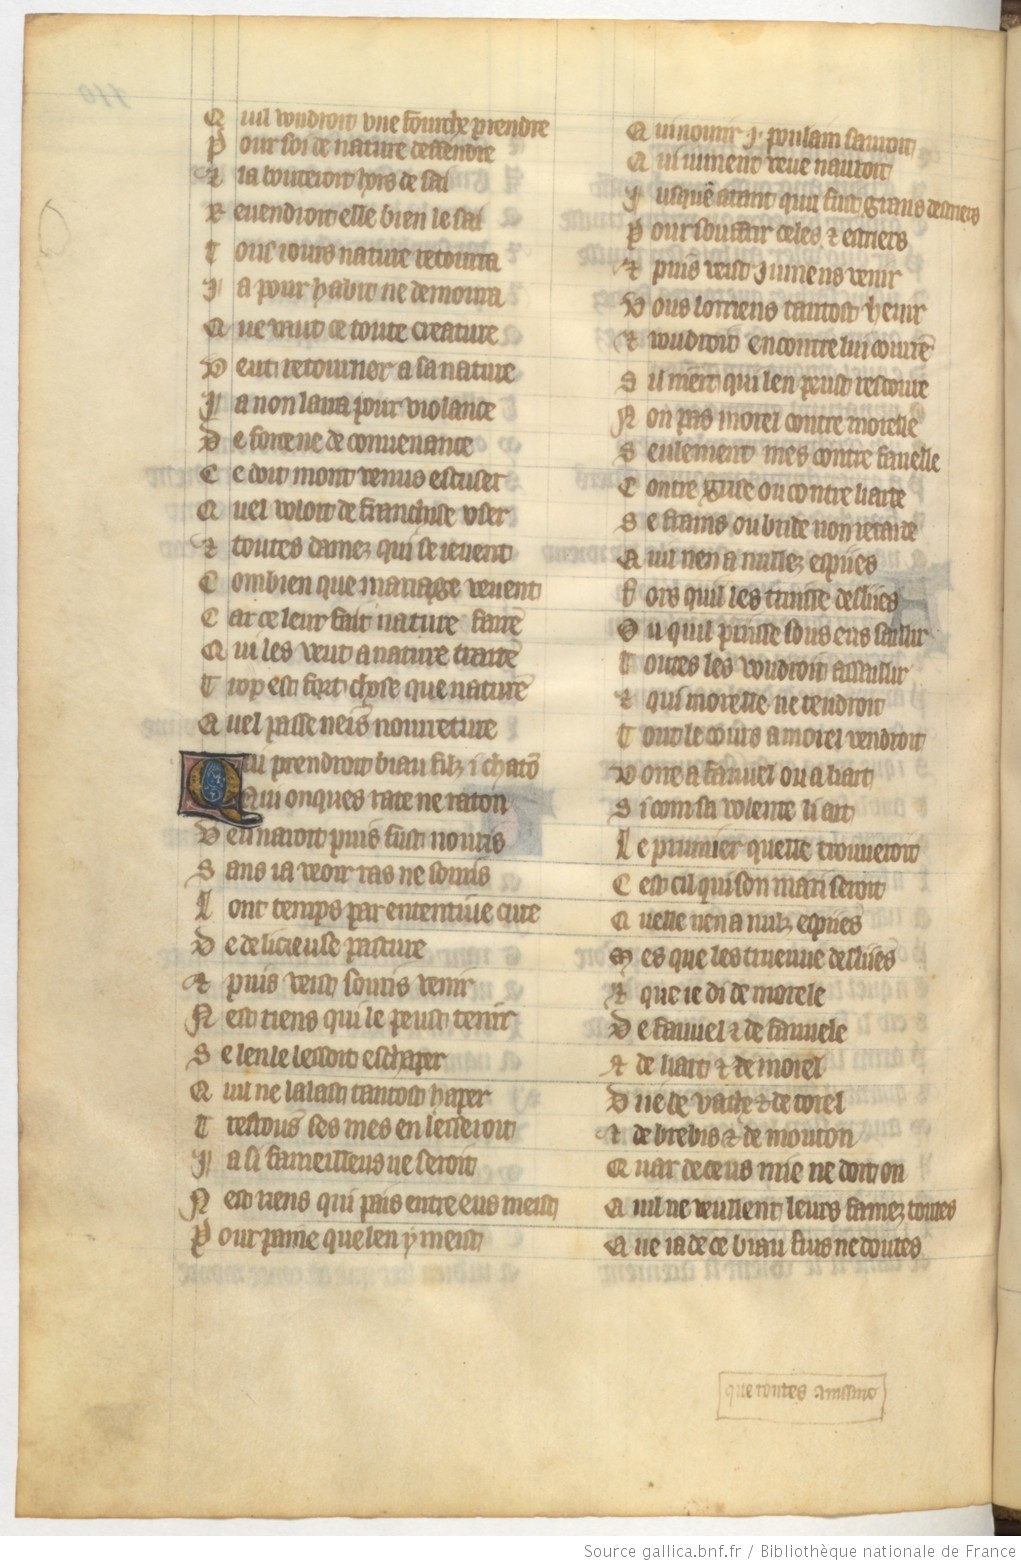 Qui voudroit une fourche prendre
Pour soi de nature deffendre
Et la bouteroit hors de sai
Revendroit elle bien le sai
Touz iours nature retourra
Ja pour habit ne demourra
Que vaut ce toute creature
Veut retourner a sa nature
Ja non laira pour violance
De force ne de convenance
Ce doit mont venus escuser
Quel voloit de franchise user
Et toutes dames qui se ieuent
Combien que mariage veuent
Car ce leur fait nature faire
Qui les veut a nature traire
Trop est fort chose que nature
Quel passe neis norreture
Qui prendroit biau filz i chaton
Qui onques rate ne raton
Veu nauroit puis fust nouris
Sans ia veoir ras ne souris
Lonc temps par ententive cure
De delicieuse pasture
Et puis veist souris venir
Nest riens qui le peust tenir
Se len le lessoit eschaper
Quil ne lalast tantost haper
Trestous ses mes en lesseroit
Ja si fameilleus ne seroit
Nest riens qui pais entre eus meist
Pour paine que len y meist
Qui norrir j. poulain sauroit
Qui iument veue nauroit
Jusque atant quil fust grans destriers
Pour souffrir celes et estriers
Et puis veist jumens venir
Vous lorriens tantost henir
Et voudroit encontre lui courre
Sil niert qui len peust rescourre
Non pas morel contre morelle
Seulement mes contre fauvelle
Contre grise ou contre liarde
Se frains ou bride non retarde
Quil nen a nullez espiies
Fors quil les truisse desliies
Ou quil puisse sous eus saillir
Toutes les voudroit assaillir
Et qui morelle ne tendroit
Tout le cours a morel vendroit
Voire a fauvel ou a liart
Si com sa volente li art
Le primier quelle trouveroit
Cest cil qui son mari seroit
Quelle nen a nulz espiies
Mes que les truevue desliies
Et que ie di de morele
De fauvel et de fauvele
Et de liart et de morel
Di ie de vache et de torel
Et de brebis et de mouton
Quar de ceus mie ne doit on
Quil ne veullent leurs famez toutes
Que ia de ce biau fius ne doutes
que toutes aussint
Source gallica.bnf.fr / Bibliothèque nationale de France